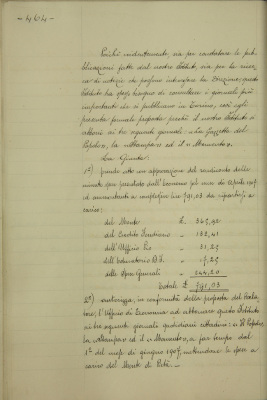 - 464 -
Poichè indubbiamente, sia per controllare le pub-
blicazioni fatte dal nostro Istituto, sia per la ricer-
ca di notizie che possono interessare la Direzione, questo
Istituto ha bisogno di consultare i giornali più
importanti che si pubblicano in Torino, così egli
presenta formale proposta perchè il nostro Istituto si
abboni ai tre seguenti giornali: La Gazzetta del
Popolo, La Stampa ed il Momento.
La Giunta:
1°) prende atto ed approvazione del rendiconto delle
minute spese presentato dall'Economo pel mese di Aprile 1907
ed ammontante a complessive lire 791,03 da ripartirsi a
carico:
del Monte L. 345,90
del Credito Fondiario " 132,41
dell'Ufficio Pio " 31,25
dell'Educatorio D. F. " 17,25
delle Spese Generali " 244,20
Totale L. 791,03
2°) autorizza, in conformità della proposta del Rela-
tore, l'Ufficio di Economia ad abbonare questo Istituto
ai tre seguenti giornali quotidiani cittadini: il Popolo,
La Stampa ed il Momento, a far tempo dal
1° del mese di giugno 1907, mettendone la spesa a
carico del Monte di Pietà.